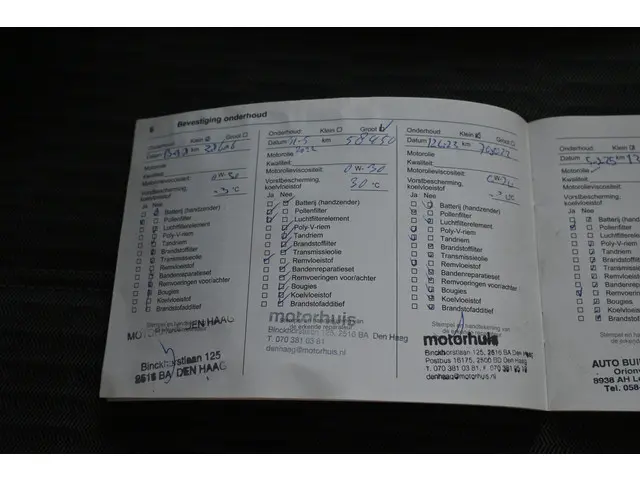 8 Bevestiging onderhoud
Onderhoud: Klein Groot
Datum km 
Motorolie
Kwaliteit
Motorolieviscositeit: 0W-30
Vorstbescherming,
koelvloeistof °C
Ja Nee
Batterij (handzender)
Pollenfilter
Luchtfilterelement
Poly-V-riem
Tandriem
Brandstoffilter
Transmissieolie
Remvloeistof
Bandenreparatieset
Remvoeringen voor/achter
Bougies
Koelvloeistof
Brandstofadditief
Stempel en
DEN HAAG
Binckhorstlaan 125
2516 BA DEN HAAG
Onderhoud: Klein Groot
Datum 11-5 km 58450
Motorolie 2022
Kwaliteit
Motorolieviscositeit: 0W-30
Vorstbescherming,
koelvloeistof 30 °C
Ja Nee
Batterij (handzender)
Pollenfilter
Luchtfilterelement
Poly-V-riem
Tandriem
Brandstoffilter
Transmissieolie
Remvloeistof
Bandenreparatieset
Remvoeringen voor/achter
Bougies
Koelvloeistof
Brandstofadditief
motorhuis
de erkende reparateur
Binckhorstlaan 125, 2516 BA Den Haag
T 070 381 03 81
denhaag@motorhuis.nl
Onderhoud: Klein Groot
Datum km
Motorolie
Kwaliteit
Motorolieviscositeit:
Vorstbescherming,
koelvloeistof °C
Ja Nee
Batterij (handzender)
Pollenfilter
Luchtfilterelement
Poly-V-riem
Tandriem
Brandstoffilter
Transmissieolie
Remvloeistof
Bandenreparatieset
Remvoeringen voor/achter
Bougies
Koelvloeistof
Brandstofadditief
Stempel en handtekening van
de erkende reparateur
motorhuis
Binckhorstlaan 125, 2516 BA Den Haag
Postbus 16175, 2500 BD Den Haag
T. 070 381 03 81, F. 070
denhaag@motorhuis.nl
Onderhoud: Klein
Datum km
Motorolie
Kwaliteit
Motorolieviscositeit:
Vorstbescherming,
koelvloeistof
Ja Nee
Batterij (handzender)
Pollenfilter
Luchtfilterelement
Poly-V-riem
Tandriem
Brandstoffilter
Transmissieolie
Remvloeistof
Bandenreparatieset
Remvoeringen
Bougies
Koelvloeistof
Brandstofadditief
Stempel en
de erkende
AUTO BU
Orion
8938 AH Le
Tel. 058-